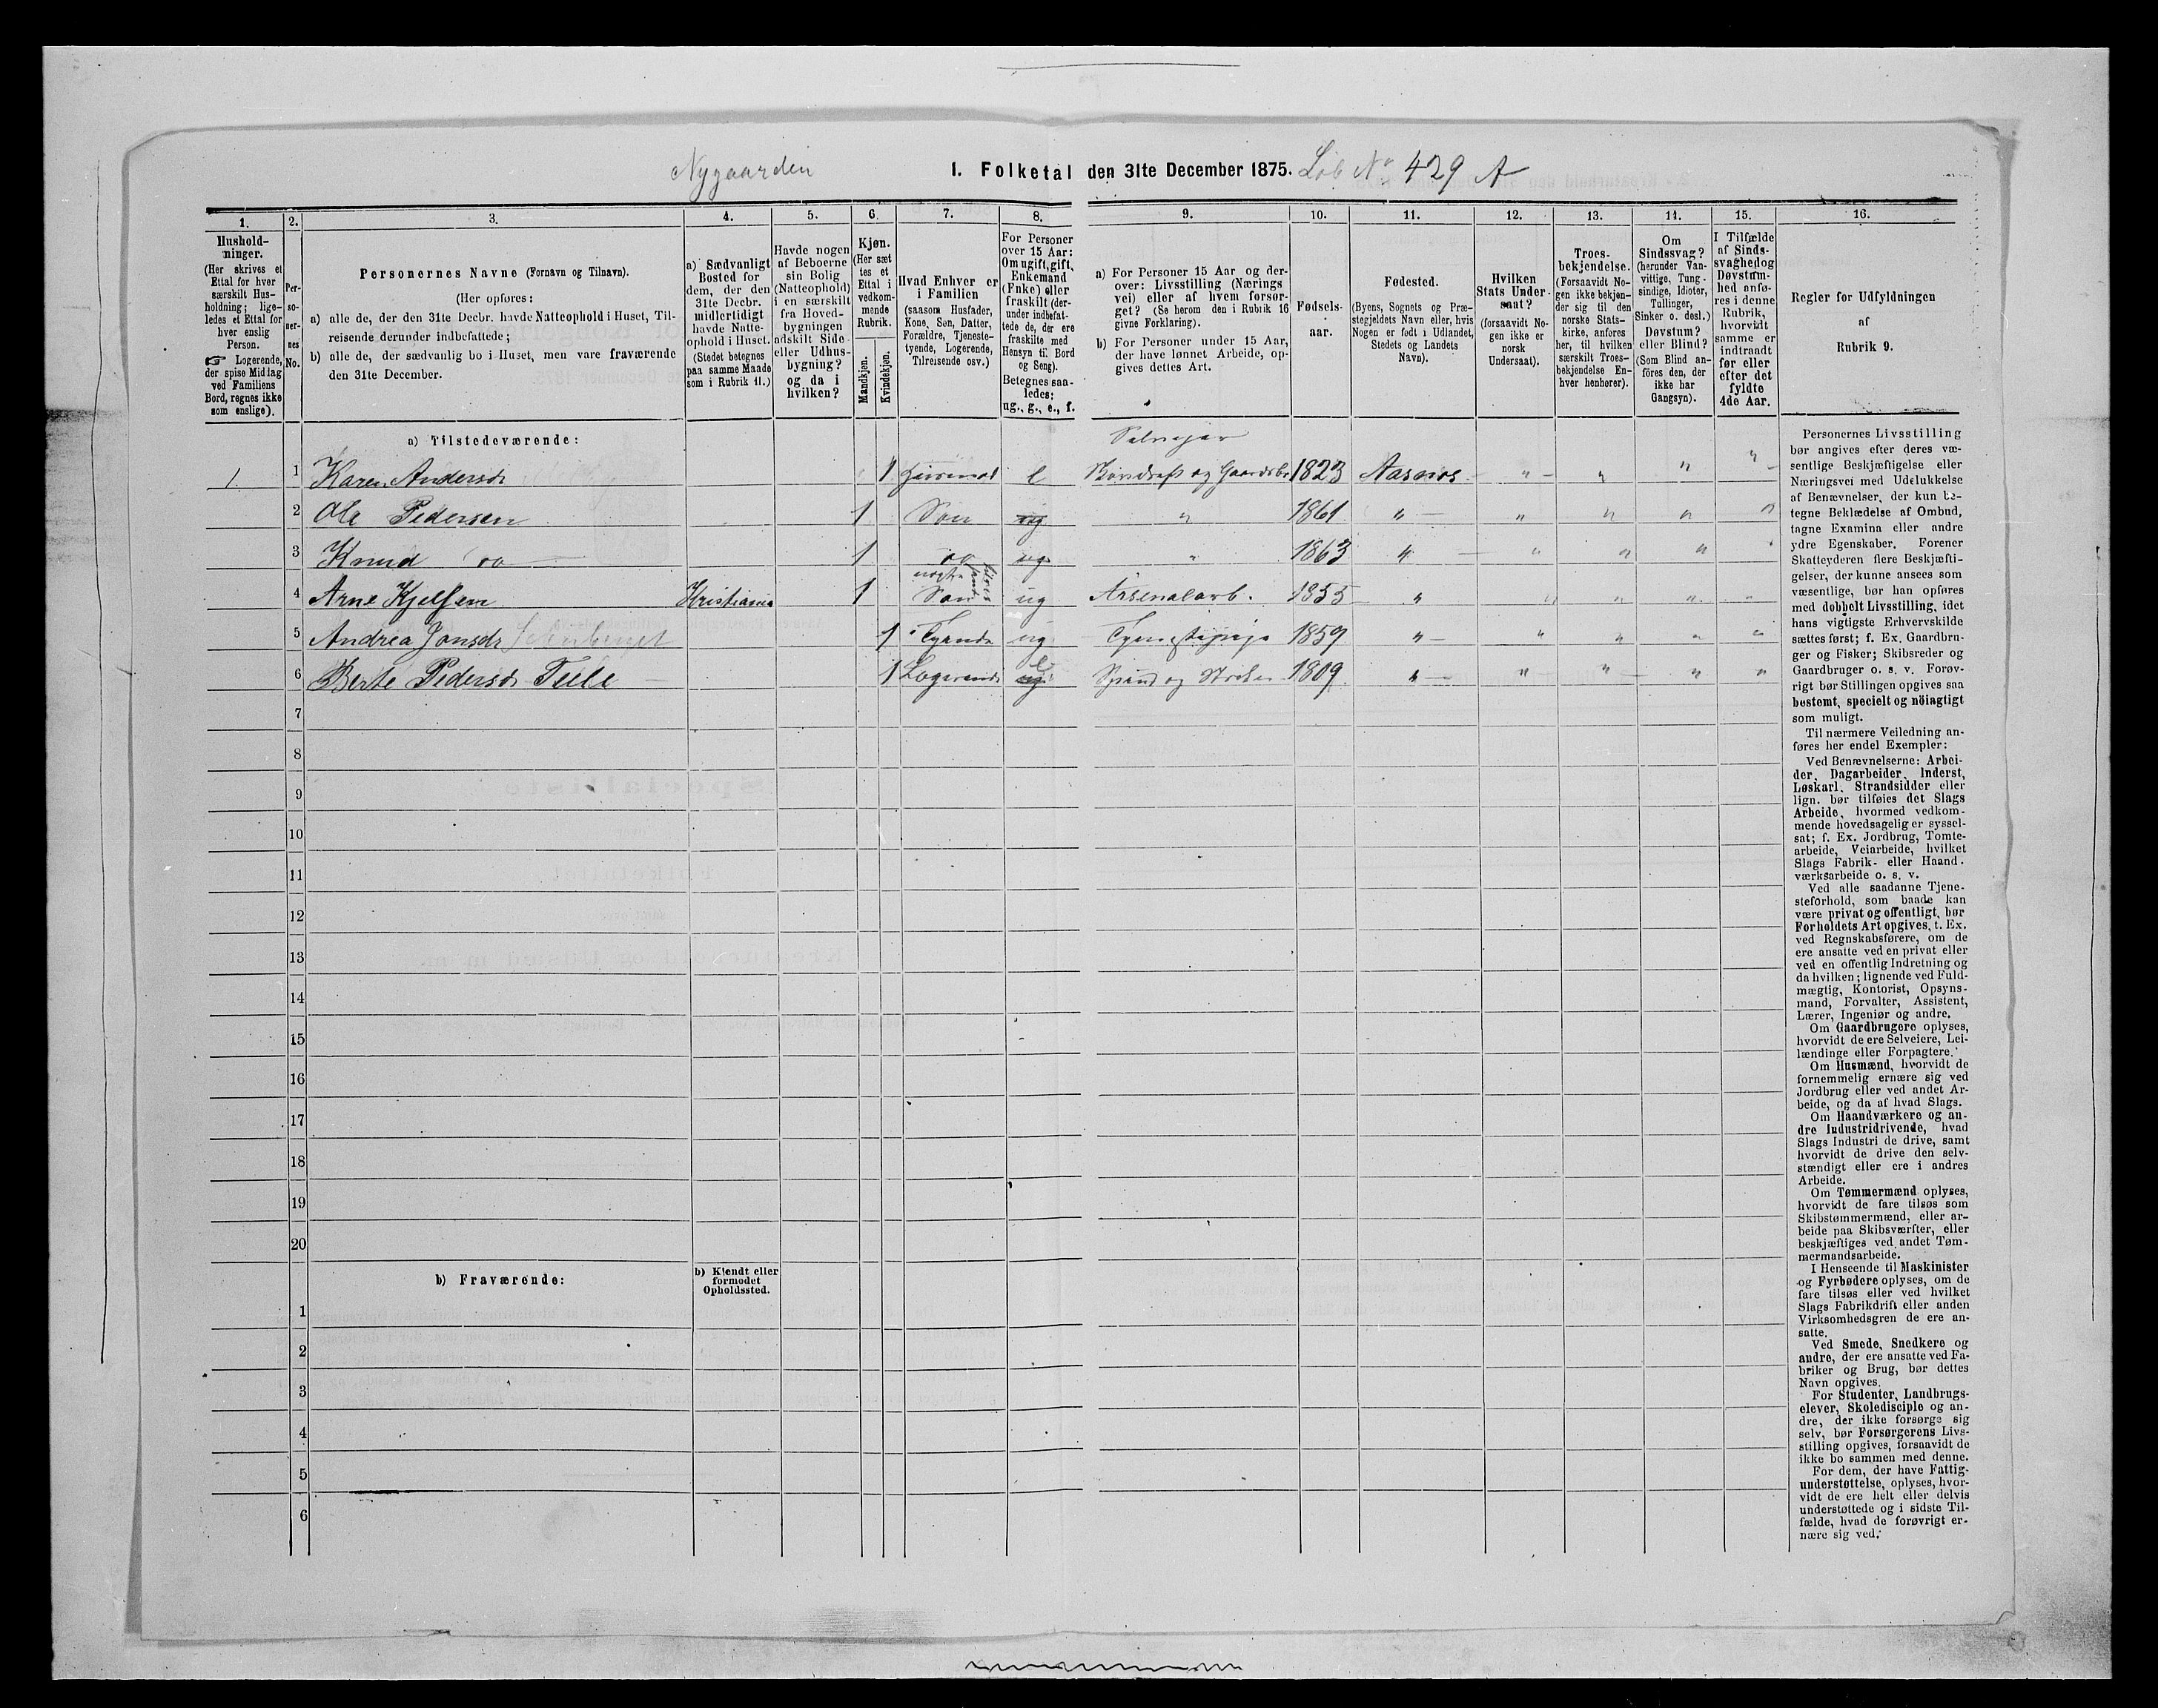 Nygaarden
1. Folketal den 31te December 1875. Løb No 429 A
1. 2. 3. 4. 5. 6. 7. 8. 9. 10. 11. 12. 13. 14. 15. 16.
Hushold-
ninger.
(Her skrives et
Ettal for hver
særskilt Hus-
holdning; lige-
ledes et Ettal for
hver enslig
Person.
☞ Logerende,
der spise Middag
ved Familiens
Bord, regnes ikke
som enslige).
Per-
so-
ner-
nes
No.
Personernes Navne (Fornavn og Tilnavn).
(Her opføres:
a) alle de, der den 31te Decbr. havde Natteophold i Huset, Til-
reisende derunder indbefattede;
b) alle de, der sædvanlig bo i Huset, men vare fraværende
den 31te December.
a) Sædvanligt
Bosted for
dem, der den
31te Decbr.
midlertidigt
havde Natte-
ophold i Huset.
(Stedet betegnes
paa samme Maade
som i Rubrik 11.)
Havde nogen
af Beboerne
sin Bolig
(Natteophold)
i en særskilt
fra Hoved-
bygningen
adskilt Side-
eller Udhus-
bygning?
og da i
hvilken?
Kjøn.
(Her sæt-
tes et
Ettal i
vedkom-
mende
Rubrik.
Mandkjøn.
Kvindekjøn.
Hvad Enhver er
i Familien
(saasom Husfader,
Kone, Søn, Datter,
Forældre, Tjeneste-
tyende, Logerende,
Tilreisende osv.)
For Personer
over 15 Aar:
Om ugift, gift,
Enkemand
(Enke) eller
fraskilt (der-
under indbefat-
tede de, der ere
fraskilte med
Hensyn til Bord
og Seng).
Betegnes saa-
ledes:
ug., g., e., f.
a) For Personer 15 Aar og der-
over: Livsstilling (Nærings-
vei) eller af hvem forsør-
get? (Se herom den i Rubrik 16
givne Forklaring).
b) For Personer under 15 Aar,
der have lønnet Arbeide, op-
gives dettes Art.
Fødsels-
aar.
Fødested.
(Byens, Sognets og Præ-
stegjeldets Navn eller, hvis
Nogen er født i Udlandet,
Stedets og Landets
Navn).
Hvilken
Stats Under-
saat?
(forsaavidt No-
gen ikke er
norsk
Undersaat).
Troes-
bekjendelse.
(Forsaavidt No-
gen ikke bekjen-
der sig til den
norske Stats-
kirke, anføres
her, til hvilken
særskilt Troes-
bekjendelse En-
hver henhører).
Om
Sindssvag?
(herunder Van-
vittige, Tung-
sindige, Idioter,
Tullinger,
Sinker o. desl.)
Døvstum?
eller Blind?
(Som Blind an-
föres den, der
ikke har
Gangsyn).
I Tilfælde
af Sinds-
svaghed og
Døvstum-
hed anfø-
res i denne
Rubrik,
hvorvidt
samme er
indtraadt
før eller
efter det
fyldte
4de Aar.
Regler for Udfyldningen
af
Rubrik 9.
a) Tilstedeværende:
Selveier
1. 1 Karen Andersdr 1 Huusmod e Kondraft og Gaardsbr 1823 Aasnæs " " " "
2 Ole Pedersen 1 Søn ug " 1861 " " " " "
3 Knud do 1 do ug " 1863 " " " " "
4 Arne Kjelsen Kristiania 1 Søn ug Arsenalarb. 1855 " " " " "
5 Andrea Jonsdr 1 Tyende ug Tjenestepige 1859 " " " " "
6 Berte Pedersdr Teele 1 Logerende ug e Spind og Strik 1809 " " " " "
7
8
9
10
11
12
13
14
15
16
17
18
19
20
b) Fraværende:
b) Kjendt eller
formodet
Opholdssted.
1
2
3
4
5
6
Personernes Livsstilling
bør angives efter deres væ-
sentlige Beskjæftigelse eller
Næringsvei med Udelukkelse
af Benævnelser, der kun be-
tegne Beklædelse af Ombud,
tagne Examina eller andre
ydre Egenskaber. Forener
Skatteyderen flere Beskjæfti-
gelser, der kunne ansees som
væsentlige, bør han opføres
med dobbelt Livsstilling, idet
hans vigtigste Erhvervskilde
sættes først; f. Ex. Gaardbru-
ger og Fisker; Skibsreder og
Gaardbruger o. s. v. Forøv-
rigt bør Stillingen opgives saa
bestemt, specielt og nöiagtigt
som muligt.
Til nærmere Veiledning an-
føres her endel Exempler:
Ved Benævnelserne: Arbei-
der, Dagarbeider, Inderst,
Løskarl, Strandsidder eller
lign. bør tilføies det Slags
Arbeide, hvormed vedkom-
mende hovedsagelig er syssel-
sat; f. Ex. Jordbrug, Tomte-
arbeide, Veiarbeide, hvilket
Slags Fabrik- eller Haand-
værksarbeide o. s. v.
Ved alle saadanne Tjene-
steforhold, som baade kan
være privat og offentligt, bør
Forholdets Art opgives, t. Ex.
ved Regnskabsførere, om de
ere ansatte ved en privat eller
ved en offentlig Indretning og
da hvilken; lignende ved Fuld-
mægtig, Kontorist, Opsyns-
mand, Forvalter, Assistent,
Lærer, Ingeniør og andre.
Om Gaardbrugere oplyses,
hvorvidt de ere Selveiere, Lei-
lændinge eller Forpagtere.
Om Husmænd, hvorvidt de
fornemmelig ernære sig ved
Jordbrug eller ved andet Ar-
beide, og da af hvad Slags.
Om Haandværkere og an-
dre Industridrivende, hvad
Slags Industri de drive, samt
hvorvidt de drive den selv-
stændigt eller ere i andres
Arbeide.
Om Tømmermænd oplyses,
hvorvidt de fare tilsøs som
Skibstømmermænd, eller ar-
beide paa Skibsværfter, eller
beskjæftiges ved andet Tøm-
mermandsarbeide.
I Henseende til Maskinister
og Fyrbødere oplyses, om de
fare tilsøs eller ved hvilket
Slags Fabrikdrift eller anden
Virksomhedsgren de ere an-
satte.
Ved Smede, Snedkere og
andre, der ere ansatte ved Fa-
briker og Brug, bør dettes
Navn opgives.
For Studenter, Landbrugs-
elever, Skoledisciple og an-
dre, der ikke forsørge sig
selv, bør Forsørgerens Livs-
stilling opgives, forsaavidt de
ikke bo sammen med denne.
For dem, der have Fattig-
understøttelse, oplyses, hvor-
vidt de ere helt eller delvis
understøttede og i sidste Til-
fælde, hvad de forøvrigt er-
nære sig ved.